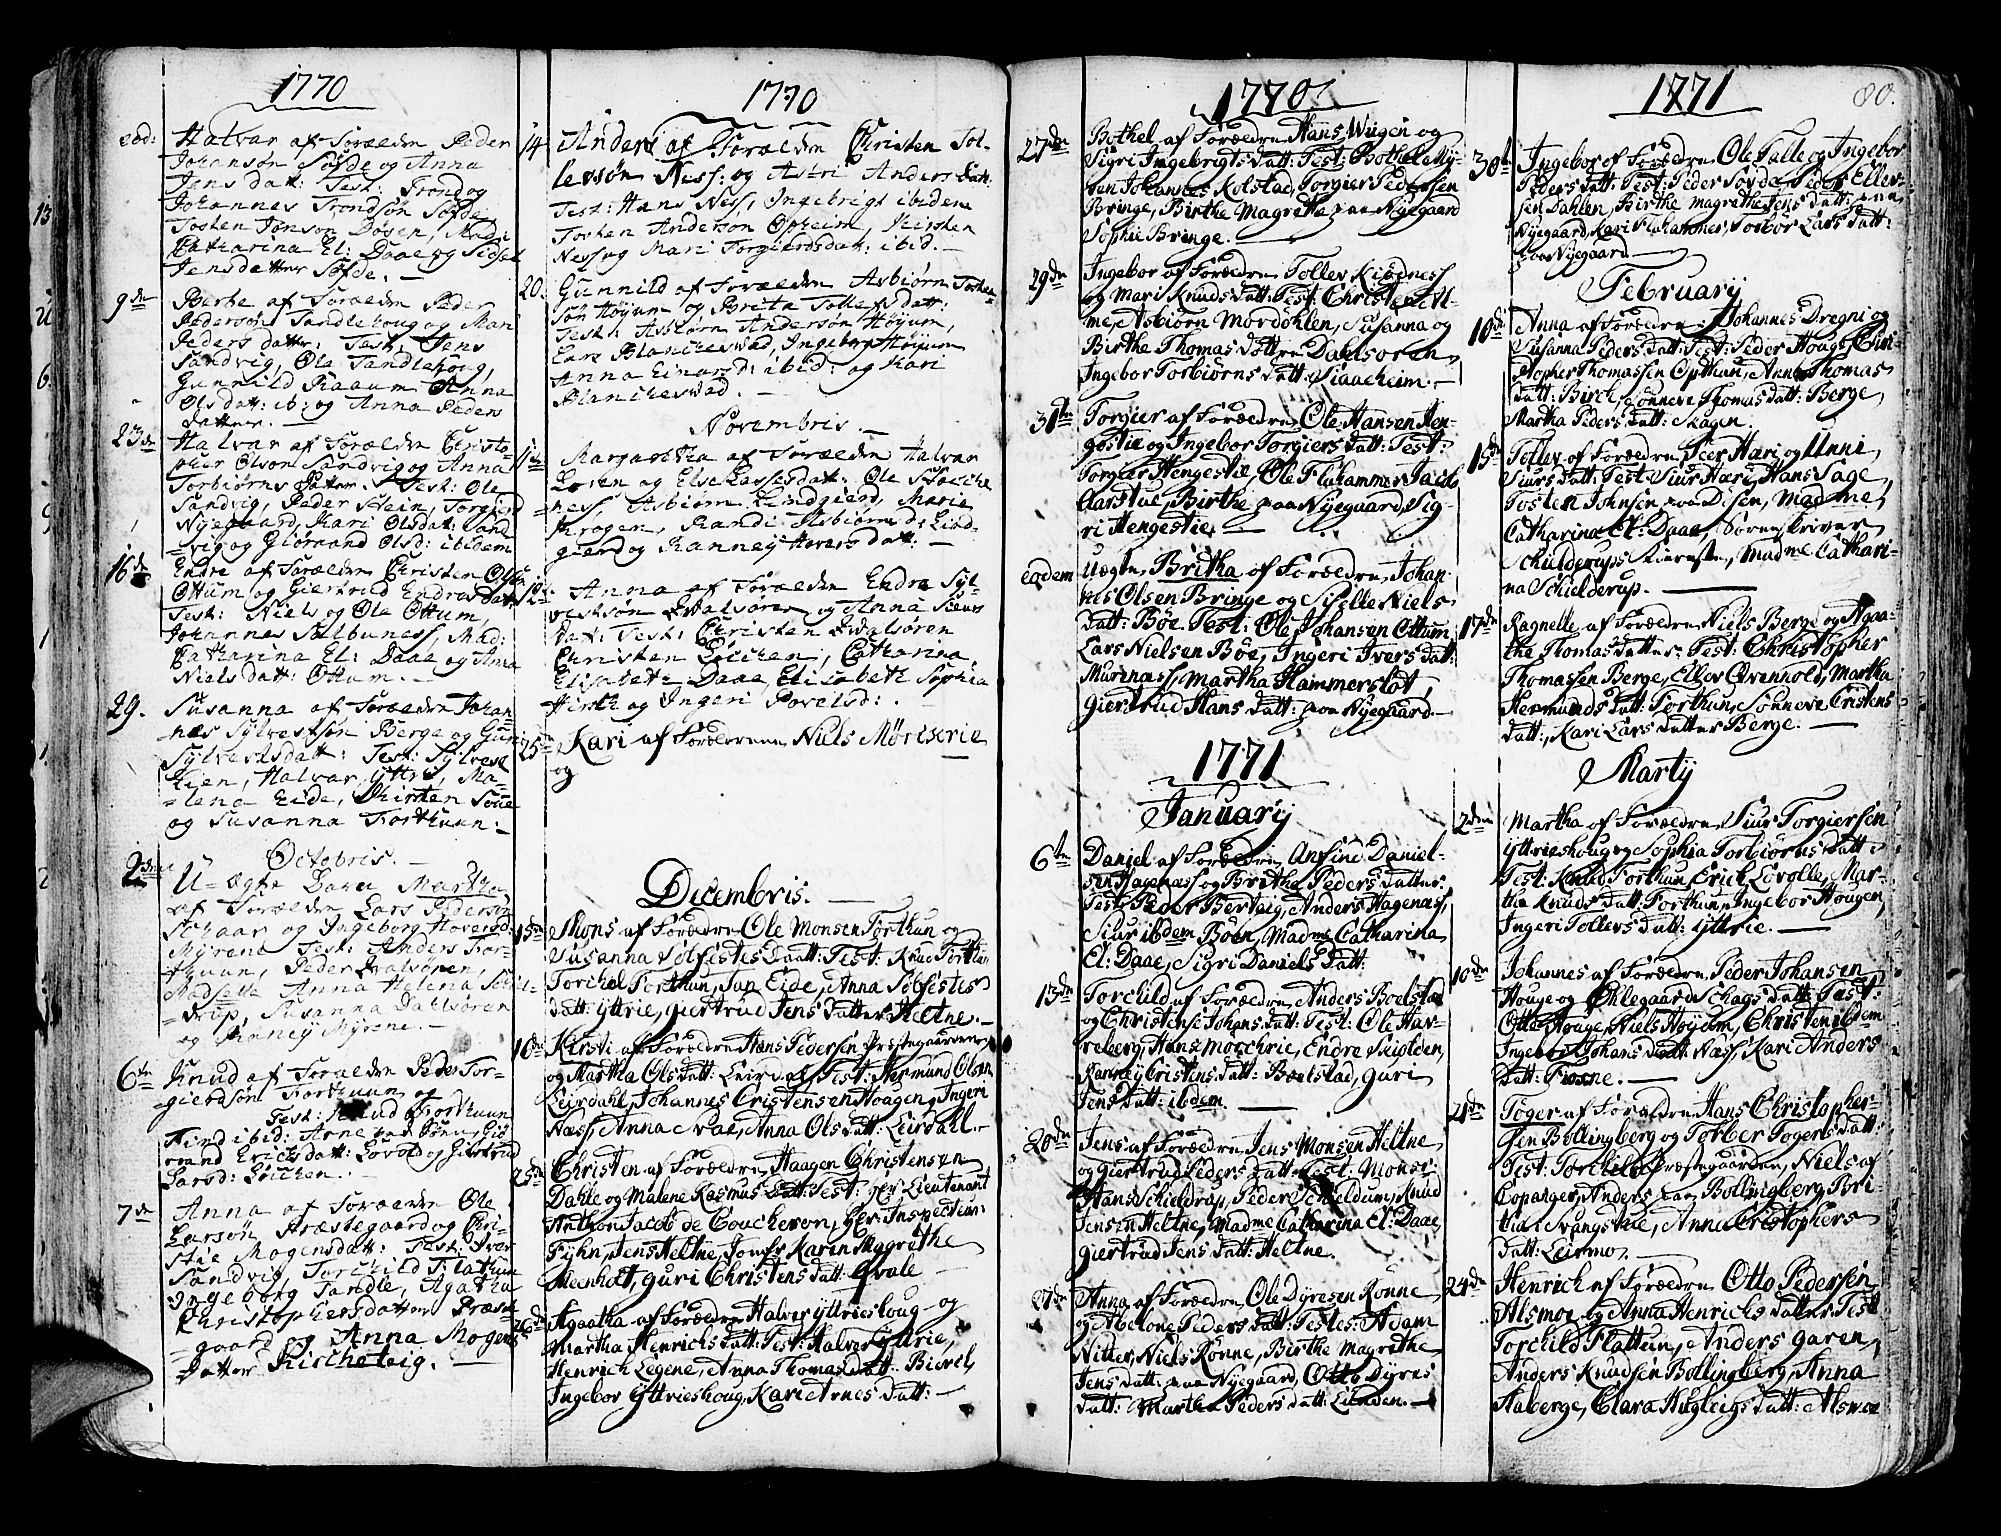 1770
eod: Halvar af Forælden Peder
Johansøn Søfde og Anna
Jens datt: Test: Trond og
Johannes Trondsøn Søfde
Tosten Jonson Døsen, Mad:
Catharina El: Daae og Sidsel
Jensdatter Søfde.
9de Berte af Forælden Peder
Pedersøn Tandlehoug og Mari
Peders datter: Test: Jens
Sandvig, Ole Tandlehoug,
Gunnild Raaum Anna
Olsdatt: ib: og Anna Peders
datter.
23de Halvar af Forælden Christo-
pher Olson Sandvig og Anna
Torbiørns Datter Test: Ole
Sandvig, Peder Stein, Torgierd
Nyegaard, Mari Olsdat: Sand
vig og Giørvand Olsd: ibidem
16de Endre af Forælden Christen Olsen
Ottum og Giertrud Endresdatt
Test: Niels og Ole Ottum,
Johannes Salbuness, Mad:
Catharina El: Daae og Anna
Nielsdatt: Ottum.
29. Susanna af Forælden Johan-
nes Sylvestsøn Berge og Guri
Sylvestsdatt: Test: Sylvest
Lien, Halvar Yttri, Ma-
lena Eide, Kirsten Soue
og Susanna Forthuun.
Octobris.
2den U-ægte Barn Martha
af Forælden Lars Pedersøn
Schaar og Ingeborg Haversd:
Myrene Test: Anders For-
thuun, Peder Dvalsøren,
Madselle Anna Helena Schil-
drup, Susanna Dahlsøren
og Ranney Myrene.
6te Knud af Forælden Peder Tor-
gierdsøn Forthuun og
Test: Knud Forthuun
Find ibid: Arne
vand Erichsdatt: Lovold og Giertrud
Larsd: Eichen.
7de Anna af Forælden Ole
Larsøn Præstegaard og Chri-
stie Mogensdatt: Test: Iver
Sandvig, Torchild Flathun
Ingeborg Tandle, Agatha
Christophersdatter Præste
gaard og Anna Mogens
Datter Kircheteig.
1770
14 Anders af Forælden Christen Tol-
levsøn Ness: og Astri Anders Datt
Test: Hans Ness, Ingebrigt ibidem
Tosten Andersøn Opheim, Kirsten
Ness og Mari Torgiersdat: ibid.
20. Gunnild af Forælden Asbiørn Tosten
søn Høyum og Brita Tollefsdatt:
Test: Asbiørn Andersøn Høyum,
Lars Blanchestad, Ingeborg Høyum
Anna Einarsd: ibid: og Mari
Blanchestad.
Novembris.
11de Margaretha af Forælden Halvar
Loven og Else Lassesdatt: Ole
ness, Asbiørn Lindgierd, Marie
Krogen, Randi Asbiørns ds Lind-
gierd og Ranney Haversdatt:
12. Anna af Forælden Endre Syl-
vestsøn Dvalsøren og Anna Siurs
dat: Test: Christen Dvalsøren
Christen Eichen, Catharina
Elisabeth Daae, Elisabeth Sophia
Hirth og Ingeri Povelsd:
25de Kari af Forældrene Niels Mørisrie
og
Decembris.
15de Mons af Forældre Ole Monsen Forthun og
Susanna Sølfestes Datt: Test: Knud Forthun
Torchel Forthun, Jan Eide, Anna Sølfestes
datt: Yttrie, Giertrud Jens Datter Heltne.
16de Kirsti af Forældre Hans Pedersen Præstegaarden
og Martha Ols datt: Leirdal Test: Hermund Olsen
Leirdahl, Johannes Cristensen Hougen, Ingeri
Næss, Anna Næss, Anna Ols datt: Leirdahl.
25de Christen af Forældre Haagen Christensen
Dahle og Malene Rasmus datt: Test: Her Lieutenant
Anthon Jacob de Coucheron, Her Inspecteur
Fyhn, Jens Heltne, Jomfr Karen Magrethe
Meenholt, Guri Christens datt: Qvale
26de Agatha af Forældre Halver Yttrieshoug og
Martha Henrichs datt: Test: Halver Yttrie,
Henrich Legene, Anna Thomas datt: Bierch,
Ingebor Yttrieshoug, Kari Arnes datt:
1770
27de Bothel af Forældre Hans Wiigen og
Sigri Ingebrigts datt: Test: Bothele
Johannes Kolstad, Torgier Pedersen
Bringe, Birthe Magrethe paa Nyegaard
Sophie Bringe.
29de Ingebor af Forældre Tollev Kiødness
og Mari Knuds datt: Test: Christen Hol-
me, Asbiørn Mordøhlen, Susanna og
Birthe Thomas døttre Dahlsøren
Ingebor Torbiørns datt: Siaaheim.
31te Torgier af Forældre Ole Hansen Hen-
gestie og Ingebor Torgiers datt: Test:
Torgier Hengestie, Ole Fluhammer Jacob
Aarstue, Birthe paa Nyegaard, Sig-
ri Hengestie
eodem Uægte Britha af Forældre Johan-
nes Olsen Bringe og Siselle Niels
datt: Bøe Test: Ole Johansen Ottum
Lars Nielsen Böe, Ingeri Ivers datt:
Murenass, Martha Hammerslot,
Giertrud Hans datt: paa Nyegaard
1771
January
6te Daniel af Forældre Anfind Daniel-
sen Hagenæss og Britha Peders datter
Test: Peder Berteig, Anders Hagenæs,
Siur ibdem Boen, Madme Catharina
El: Daae, Sigri Daniels datt:
13de Torchild af Forældre Anders Boelstad
og Christense Johans datt: Test: Ole Har-
reberg, Hans Morchrie, Endre Skiolden,
Ranney Cristens datt: Boelstad, Guri
Jens datt: ibdem.
20de Jens af Forældre Jens Monsen Heltne
og Giertrud Peders datt: Test: Monsr
Hans Schieldrup, Peder Schieldrup, Knud
Jensen Heltne, Madme Catharina El: Daae,
Giertrud Jens datt: Heltne.
27de Anna af Forældre Ole Dyresen Rönne
og Abelone Peders datt: Testes: Adam
Nitter, Niels Rönne, Birthe Magrethe
Jens datt: paa Nyegaard, Otto Dyres
datt: Martha Peders datt: Lienden.
1771
80.
30te Ingebor af Forældre Ole Talle og Ingebor
Peders datt: Test: Peder Sovde, Peder Ellev-
sen Dahlen, Birthe Magrethe Jens datt: paa
Nyegaard, Kari Fluhammer, Torbor Lars datt:
paa Nyegaard
February
10de Anna af Forældre: Johannes Dregni og
Susanna Peders datt: Test: Peder Houge, Chri-
stopher Thomassen Opthun, Anna Thomas
datt: Birch, Sönneve Thomas datt: Berge
Martha Peders datt: Skagen.
15de Tollev af Forældre Peer Hari og Unni
Siurs datt: Test: Siur Hære, Hans Sage,
Tosten Johnsen paa Disen, Madme
Catharina El: Daae, Sorenskriver
Schielderups tieneste, Madme Cathari-
na Schielderup.
17de Ragnelle af Forældre Niels Berge og Aga-
the Thomas datter Test: Christopher
Thomassen Berge, Ellev Qvenhold, Martha
Hermunds datt: Forthun, Sönneve Cristens
datt:, Kari Lars datter Berge.
Martÿ
2den Martha af Forældre Siur Torgiersen
Yttrieshoug og Sophia Torbiørns datt:
Test: Knud Forthun, Erich Lovolle, Mar-
the Knuds datt: Forthun, Ingebor Hougen,
Ingeri Tollevs datt: Yttrie.
10de Johannes af Forældre Peder Johansen
Houge og Ohlegaard Schags datt: Test:
Otto Houge, Niels Höyum, Christen ibdem
Ingebor Johans datt: Næss, Kari Anders
datt: Fiøsne.
21de Toger af Forældre Hans Christopher-
sen Bollingberg og Torber Togers datt:
Test: Torchild Præstegaarden, Niels af
Copanger, Anders paa Bollingberg Bri-
tha Svangstue, Anna Cristophers
datt: Leirmo.
24de Henrich af Forældre Otto Pedersen
Alsmoe og Anna Henrichs datter Test
Torchild Flattun, Anders Garen,
Anders Knudsen Bollingberg, Anna
Aaberge, Clara Huglegs datt: Alsmoe